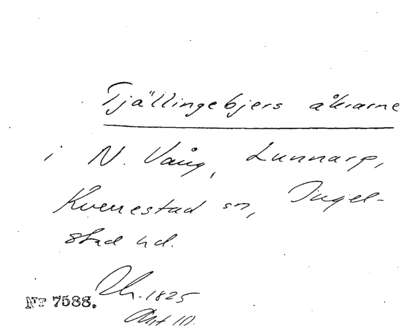 Tjällingebjers åkrarne
i N. Vång, Lunnarp,
Kverrestad sn, Ingel-
stad hd.
Nr 7588. 1825
Akt 10.